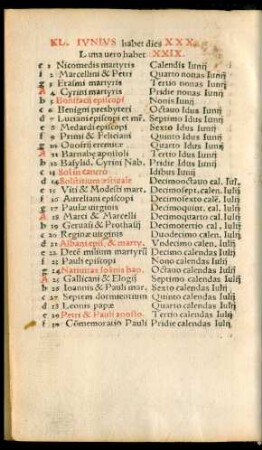 KL. IVNIVS habet dies XXX.
Luna vero habet XXIX.
e 1 Nicomedis martyris Calendis Iunij
f 2 Marcellini & Petri Quarto nonas Iunij
g 3 Erasmi martyris Tertio nonas Iunij
A 4 Cyrini martyris Pridie nonas Iunij
b 5 Bonifacii episcopi Nonis Iunij
c 6 Benigni presbyteri Octauo Idus Iunij
d 7 Luciani episcopi et mř. Septimo Idus Iunij
e 8 Medardi episcopi Sexto Idus Iunij
f 9 Primi & Feliciani Quinto Idus Iunij
g 10 Onofrij eremitæ Quarto Idus Iunij
A 11 Barnabę apostoli Tertio Idus Iunij
b 12 Basylid. Cyrini Nab. Pridie Idus Iunij
c 13 Sol in cancro Idibus Iunij
d 14 Solstitium æstiuale Decimooctauo cal. Iul.
e 15 Viti & Modesti mart. Decimosept. calen. Iulij
f 16 Aureliani episcopi Decimosexto calē. Iulij
g 17 Paulæ virginis Decimoquint. cal. Iulij
A 18 Marci & Marcelli Decimoquarto cal. Iulij
b 19 Geruasi & Prothasij Decimotertio cal. Iulij
c 20 Reginæ virginis Duodecimo calen. Iulij
d 21 Albani epis. & marty. Vndecimo calen. Iulij
e 22 Decē milium martyrū Decimo calen. Iulij
f 23 Pauli episcopi Nono calendas Iulij
g 24 Natiuitas Ioānis bap. Octauo calendas Iulij
A 25 Gallicani & Elogij Septimo calendas Iulij
b 26 Ioannis & Pauli mar. Sexto calendas Iulij
c 27 Septem dormientium Quinto calendas Iulij
d 28 Leonis papæ Quarto calendas Iulij
e 29 Petri & Pauli aposto. Tertio calendas Iulij
f 30 Cōmemoratio Pauli Pridie calendas Iulij